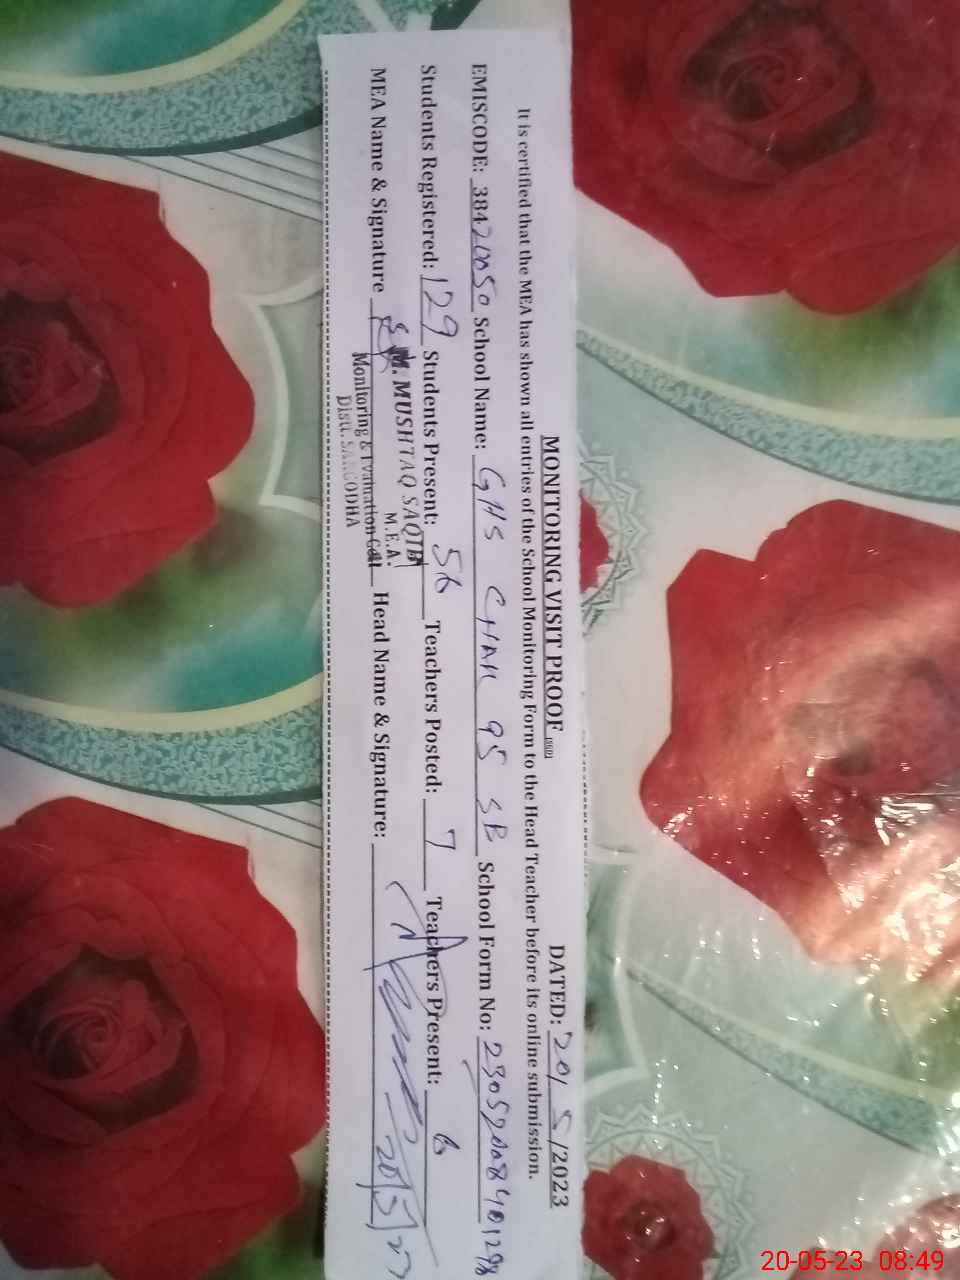 MONITORING VISIT PROOF DATED: 20/5/2023
It is certified that the MEA has shown all entries of the School Monitoring Form to the Head Teacher before its online submission.
EMISCODE: 38420050 School Name: GHS CHAK 95 SB School Form No:
Students Registered: 129 Students Present: 56 Teachers Posted: 7 Teachers Present: 6
MEA Name & Signature Head Name & Signature:
M. MUSHTAQ SAQIB
M.E.A.
Monitoring & Evaluation Cell
Distt. SARGODHA
20/5/23
20-05-23 08:49